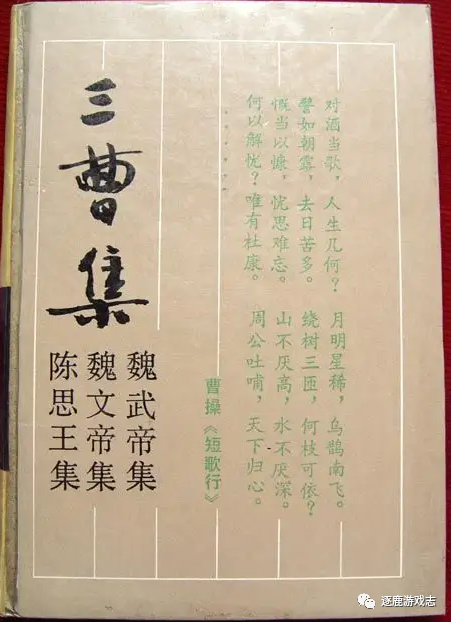 三曹集
魏武帝集
魏文帝集
陈思王集
对酒当歌，人生几何？
譬如朝露，去日苦多。
慨当以慷，忧思难忘。
何以解忧？唯有杜康。
月明星稀，乌鹊南飞。
绕树三匝，何枝可依？
山不厌高，水不厌深。
周公吐哺，天下归心。
曹操《短歌行》
逐鹿游戏志